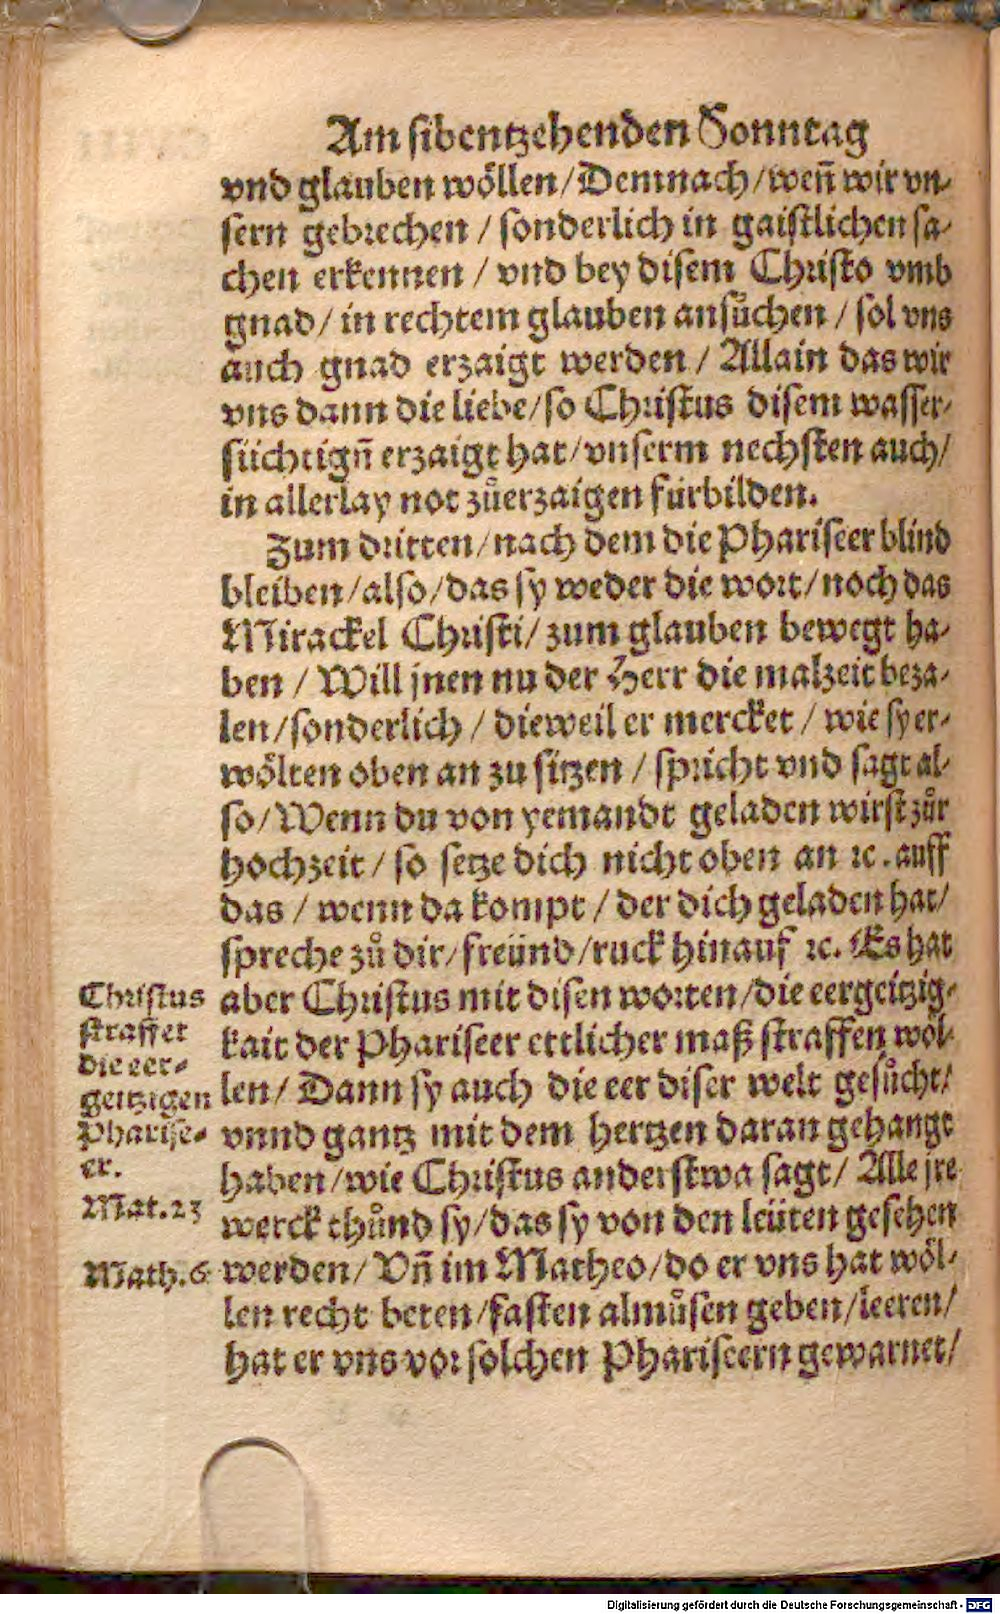 Am sibentzehenden Sonntag
vnd glauben wöllen/Demnach/weñ wir vn-
sern gebrechen / sonderlich in gaistlichen sa-
chen erkennen / vnd bey disem Christo vmb
gnad/ in rechtem glauben ansůchen / sol vns
auch gnad erzaigt werden / Allain das wir
vns dann die liebe/so Christus disem wasser-
süchtigñ erzaigt hat/vnserm nechsten auch/
in allerlay not zůerzaigen fürbilden.
Zum dritten/nach dem die Phariseer blind
bleiben/also/das sy weder die wort/noch das
Mirackel Christi/ zum glauben bewegt ha-
ben / Will jnen nu der Herr die malzeit beza-
len/sonderlich / dieweil er mercket / wie sy er-
wölten oben an zu sitzen / spricht vnd sagt al-
so/ Wenn du von yemandt geladen wirst zůr
hochzeit / so setze dich nicht oben an ꝛc. auff
das / wenn da kompt / der dich geladen hat/
spreche zů dir/freünd/ruck hinauf ꝛc. Es hat
aber Christus mit disen worten/die eergeitzig-
kait der Phariseer ettlicher maß straffen wöl-
len/ Dann sy auch die eer diser welt gesůcht/
vnnd gantz mit dem hertzen daran gehangt
haben/wie Christus anderstwa sagt/ Alle jre
werck thůnd sy/das sy von den leüten gesehen
werden/ Vñ im Matheo/do er vns hat wöl-
len recht beten/fasten almůsen geben/leeren/
hat er vns vor solchen Phariseern gewarnet/
Christus
straffet
die eer-
geitzigen
Pharise-
er.
Mat.23
Math.6
Digitalisierung gefördert durch die Deutsche Forschungsgemeinschaft - DFG